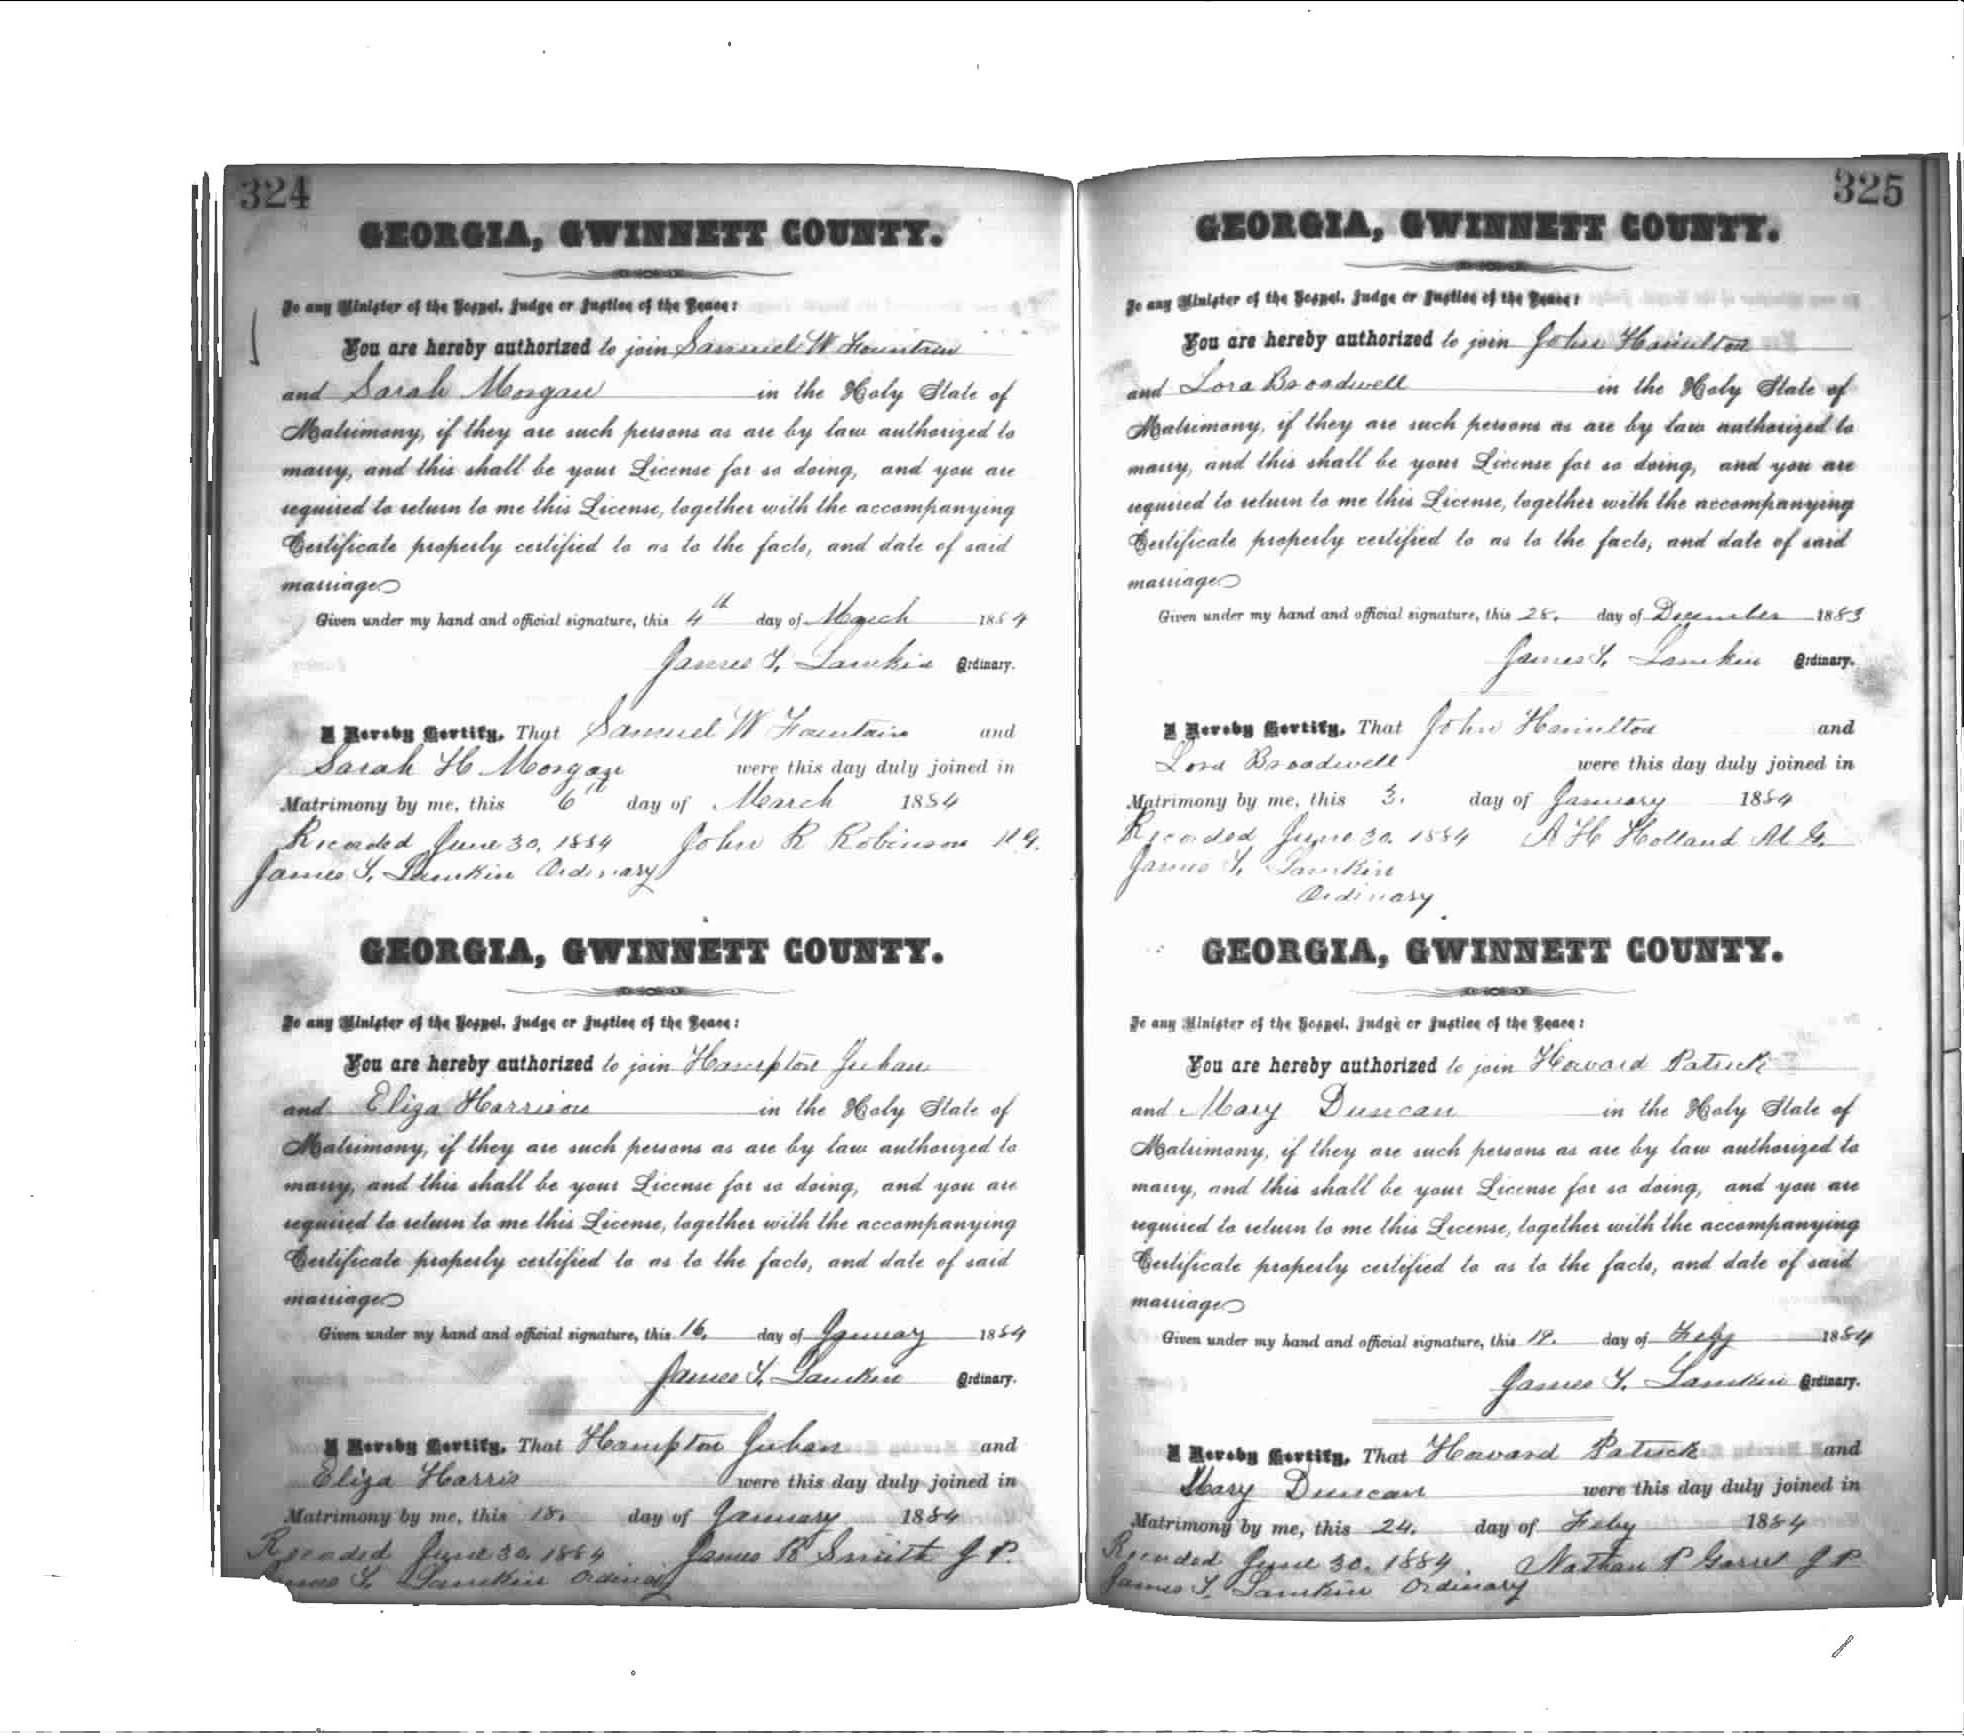 324
GEORGIA, GWINNETT COUNTY.
To any Minister of the Gospel, Judge or Justice of the Peace:
You are hereby authorized to join Samuel W Fountain
and Sarah Morgan in the Holy State of
Matrimony, if they are such persons as are by law authorized to
marry, and this shall be your License for so doing, and you are
required to return to me this License, together with the accompanying
Certificate properly certified to as to the facts, and date of said
marriage
Given under my hand and official signature, this 4th day of March 1884
James T. Lamkin Ordinary.
I Hereby Certify, That Samuel W Fountain and
Sarah H Morgan were this day duly joined in
Matrimony by me, this 6th day of March 1884
Recorded June 30, 1884 John R Robinson M.G.
James T. Lamkin Ordinary
GEORGIA, GWINNETT COUNTY.
To any Minister of the Gospel, Judge or Justice of the Peace:
You are hereby authorized to join Hampton Juhan
and Eliza Harrison in the Holy State of
Matrimony, if they are such persons as are by law authorized to
marry, and this shall be your License for so doing, and you are
required to return to me this License, together with the accompanying
Certificate properly certified to as to the facts, and date of said
marriage
Given under my hand and official signature, this 16. day of January 1884
James T. Lamkin Ordinary.
I Hereby Certify, That Hampton Juhan and
Eliza Harris were this day duly joined in
Matrimony by me, this 18. day of January 1884
Recorded June 30, 1884 James R Smith J P.
James T. Lamkin Ordinary
325
GEORGIA, GWINNETT COUNTY.
To any Minister of the Gospel, Judge or Justice of the Peace:
You are hereby authorized to join John Hamilton
and Lora Broadwell in the Holy State of
Matrimony, if they are such persons as are by law authorized to
marry, and this shall be your License for so doing, and you are
required to return to me this License, together with the accompanying
Certificate properly certified to as to the facts, and date of said
marriage
Given under my hand and official signature, this 28. day of December 1883
James T. Lamkin Ordinary.
I Hereby Certify, That John Hamilton and
Lora Broadwell were this day duly joined in
Matrimony by me, this 3. day of January 1884
Recorded June 30. 1884 A H Holland M. G.
James T. Lamkin
Ordinary
GEORGIA, GWINNETT COUNTY.
To any Minister of the Gospel, Judge or Justice of the Peace:
You are hereby authorized to join Howard Patrick
and Mary Duncan in the Holy State of
Matrimony, if they are such persons as are by law authorized to
marry, and this shall be your License for so doing, and you are
required to return to me this License, together with the accompanying
Certificate properly certified to as to the facts, and date of said
marriage
Given under my hand and official signature, this 19. day of Feby 1884
James T. Lamkin Ordinary.
I Hereby Certify, That Howard Patrick and
Mary Duncan were this day duly joined in
Matrimony by me, this 24. day of Feby 1884
Recorded June 30. 1884 Nathan P J P
James T. Lamkin Ordinary